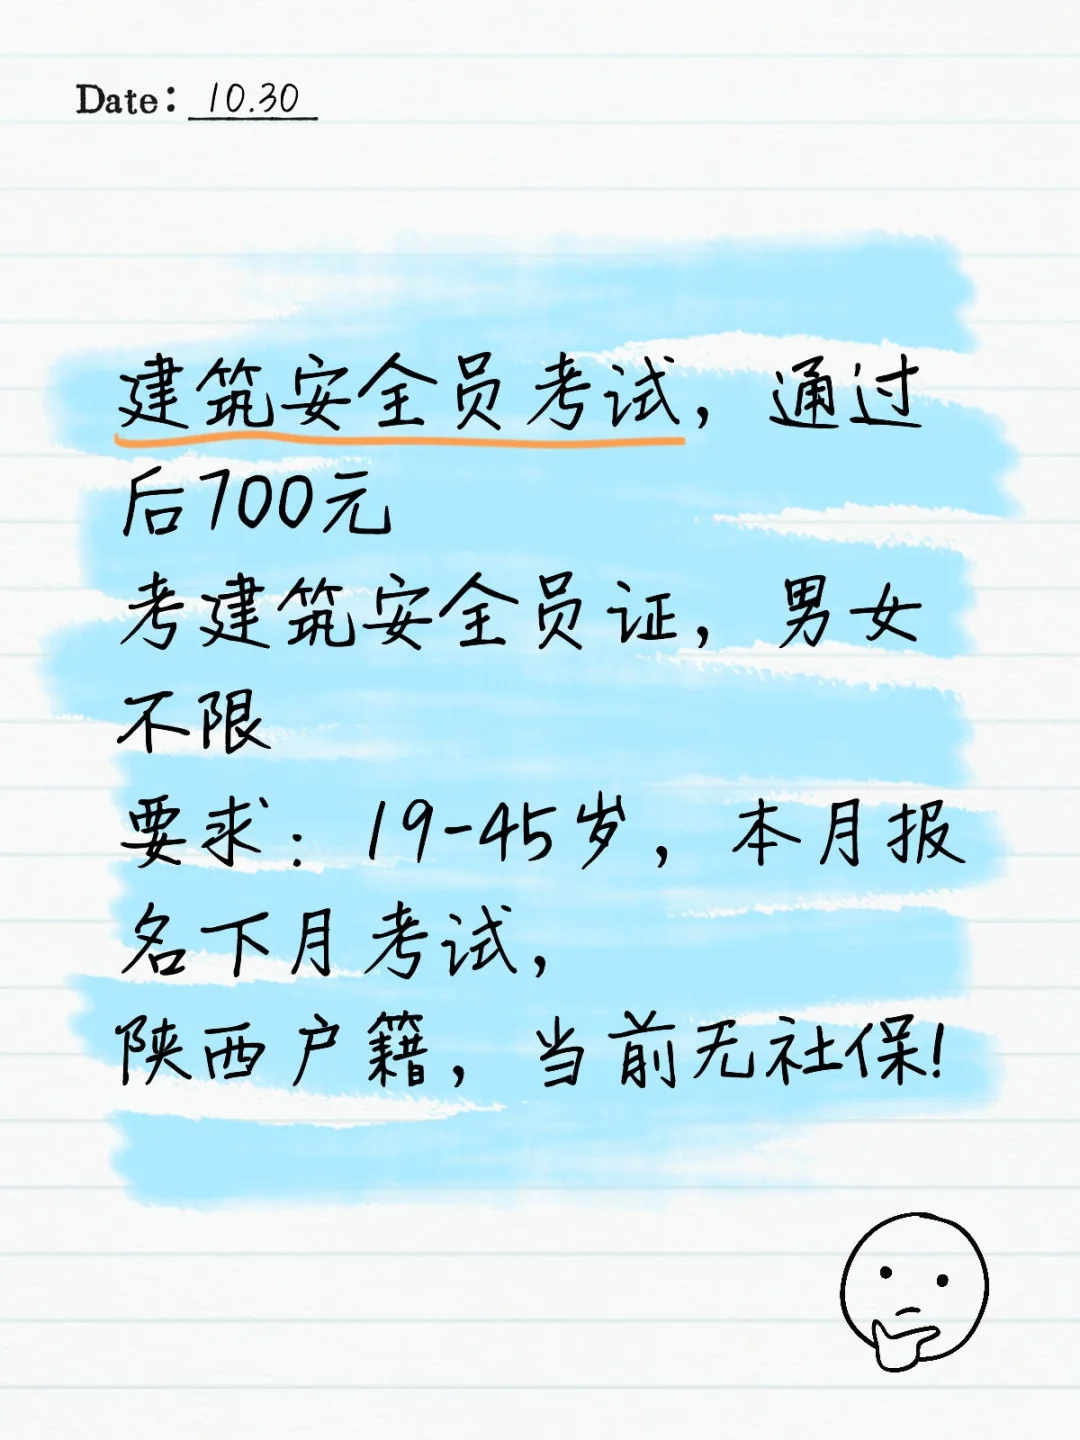 Date: 10.30
建筑安全员考试，通过
后700元
考建筑安全员证，男女
不限
要求：19-45岁，本月报
名下月考试，
陕西户籍，当前无社保!